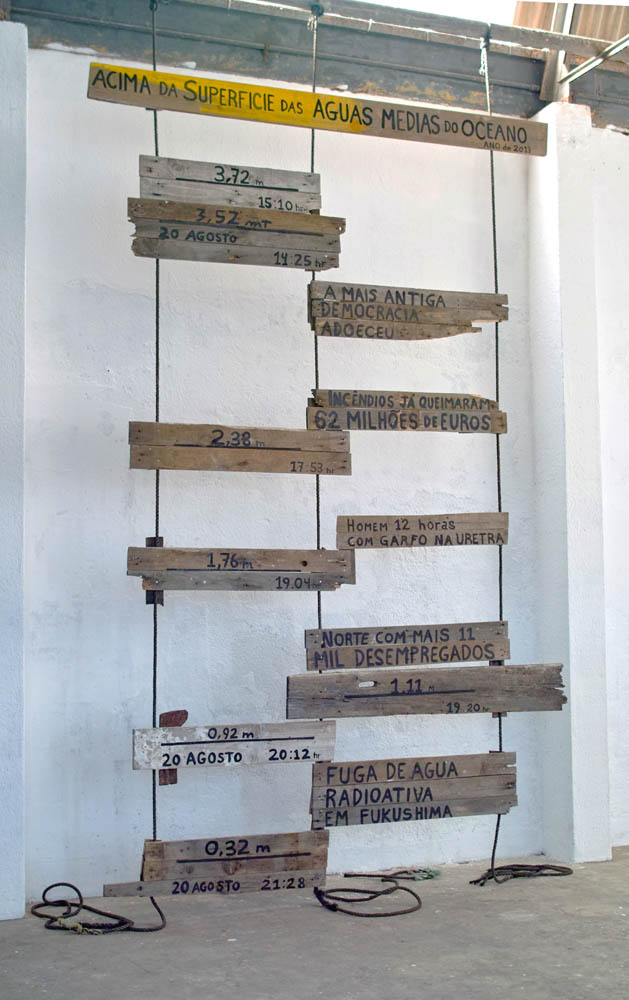 ACIMA DA SUPERFICIE DAS AGUAS MEDIAS DO OCEANO
ANO de 2013
3,72 m
15:10 hr
3,52 mT
20 AGOSTO
14:25 hr
A MAIS ANTIGA
DEMOCRACIA
ADOECEU
INCÊNDIOS JÁ QUEIMARAM
62 MILHÕES DE EUROS
2,38 m
17:53 hr
HOMEM 12 horas
COM GARFO NA URETRA
1,76 m
19:04 hr
NORTE COM MAIS 11
MIL DESEMPREGADOS
1,11 m
19:20 hr
0,92 m
20 AGOSTO 20:12 hr
FUGA DE AGUA
RADIOATIVA
EM FUKUSHIMA
0,32 m
20 AGOSTO 21:28